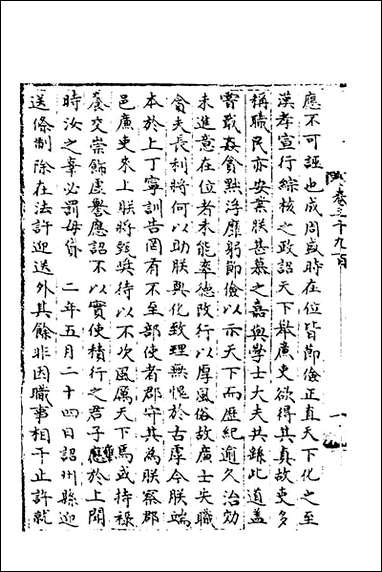 應不可誣也成周盛時在位皆節儉正直天下化之至
漢孝宣行綜核之政詔天下欲得其真故吏多
稱職民亦安業朕甚慕之嘉與學士大夫共繇此道蓋
嘗戢姦貪黜浮靡躬節儉以示天下而歷紀逾久治効
未進意在位者未能奉德改行以厚風俗故廣士失職
貪夫長利將何以助朕興化致理無愧於古虖今朕端
本於上丁寧訓告罔有不至部使者郡守其為朕察郡
邑廉吏來上朕將甄奬待以不次風厲天下焉或持祿
養交崇飾虛譽應詔不以實使積行之君子壅於上聞
時汝之辜必罰毋貸 二年五月二十四日詔州縣迎
送條制除在法許迎送外其餘非因職事相干止許就
卷三千九百
一